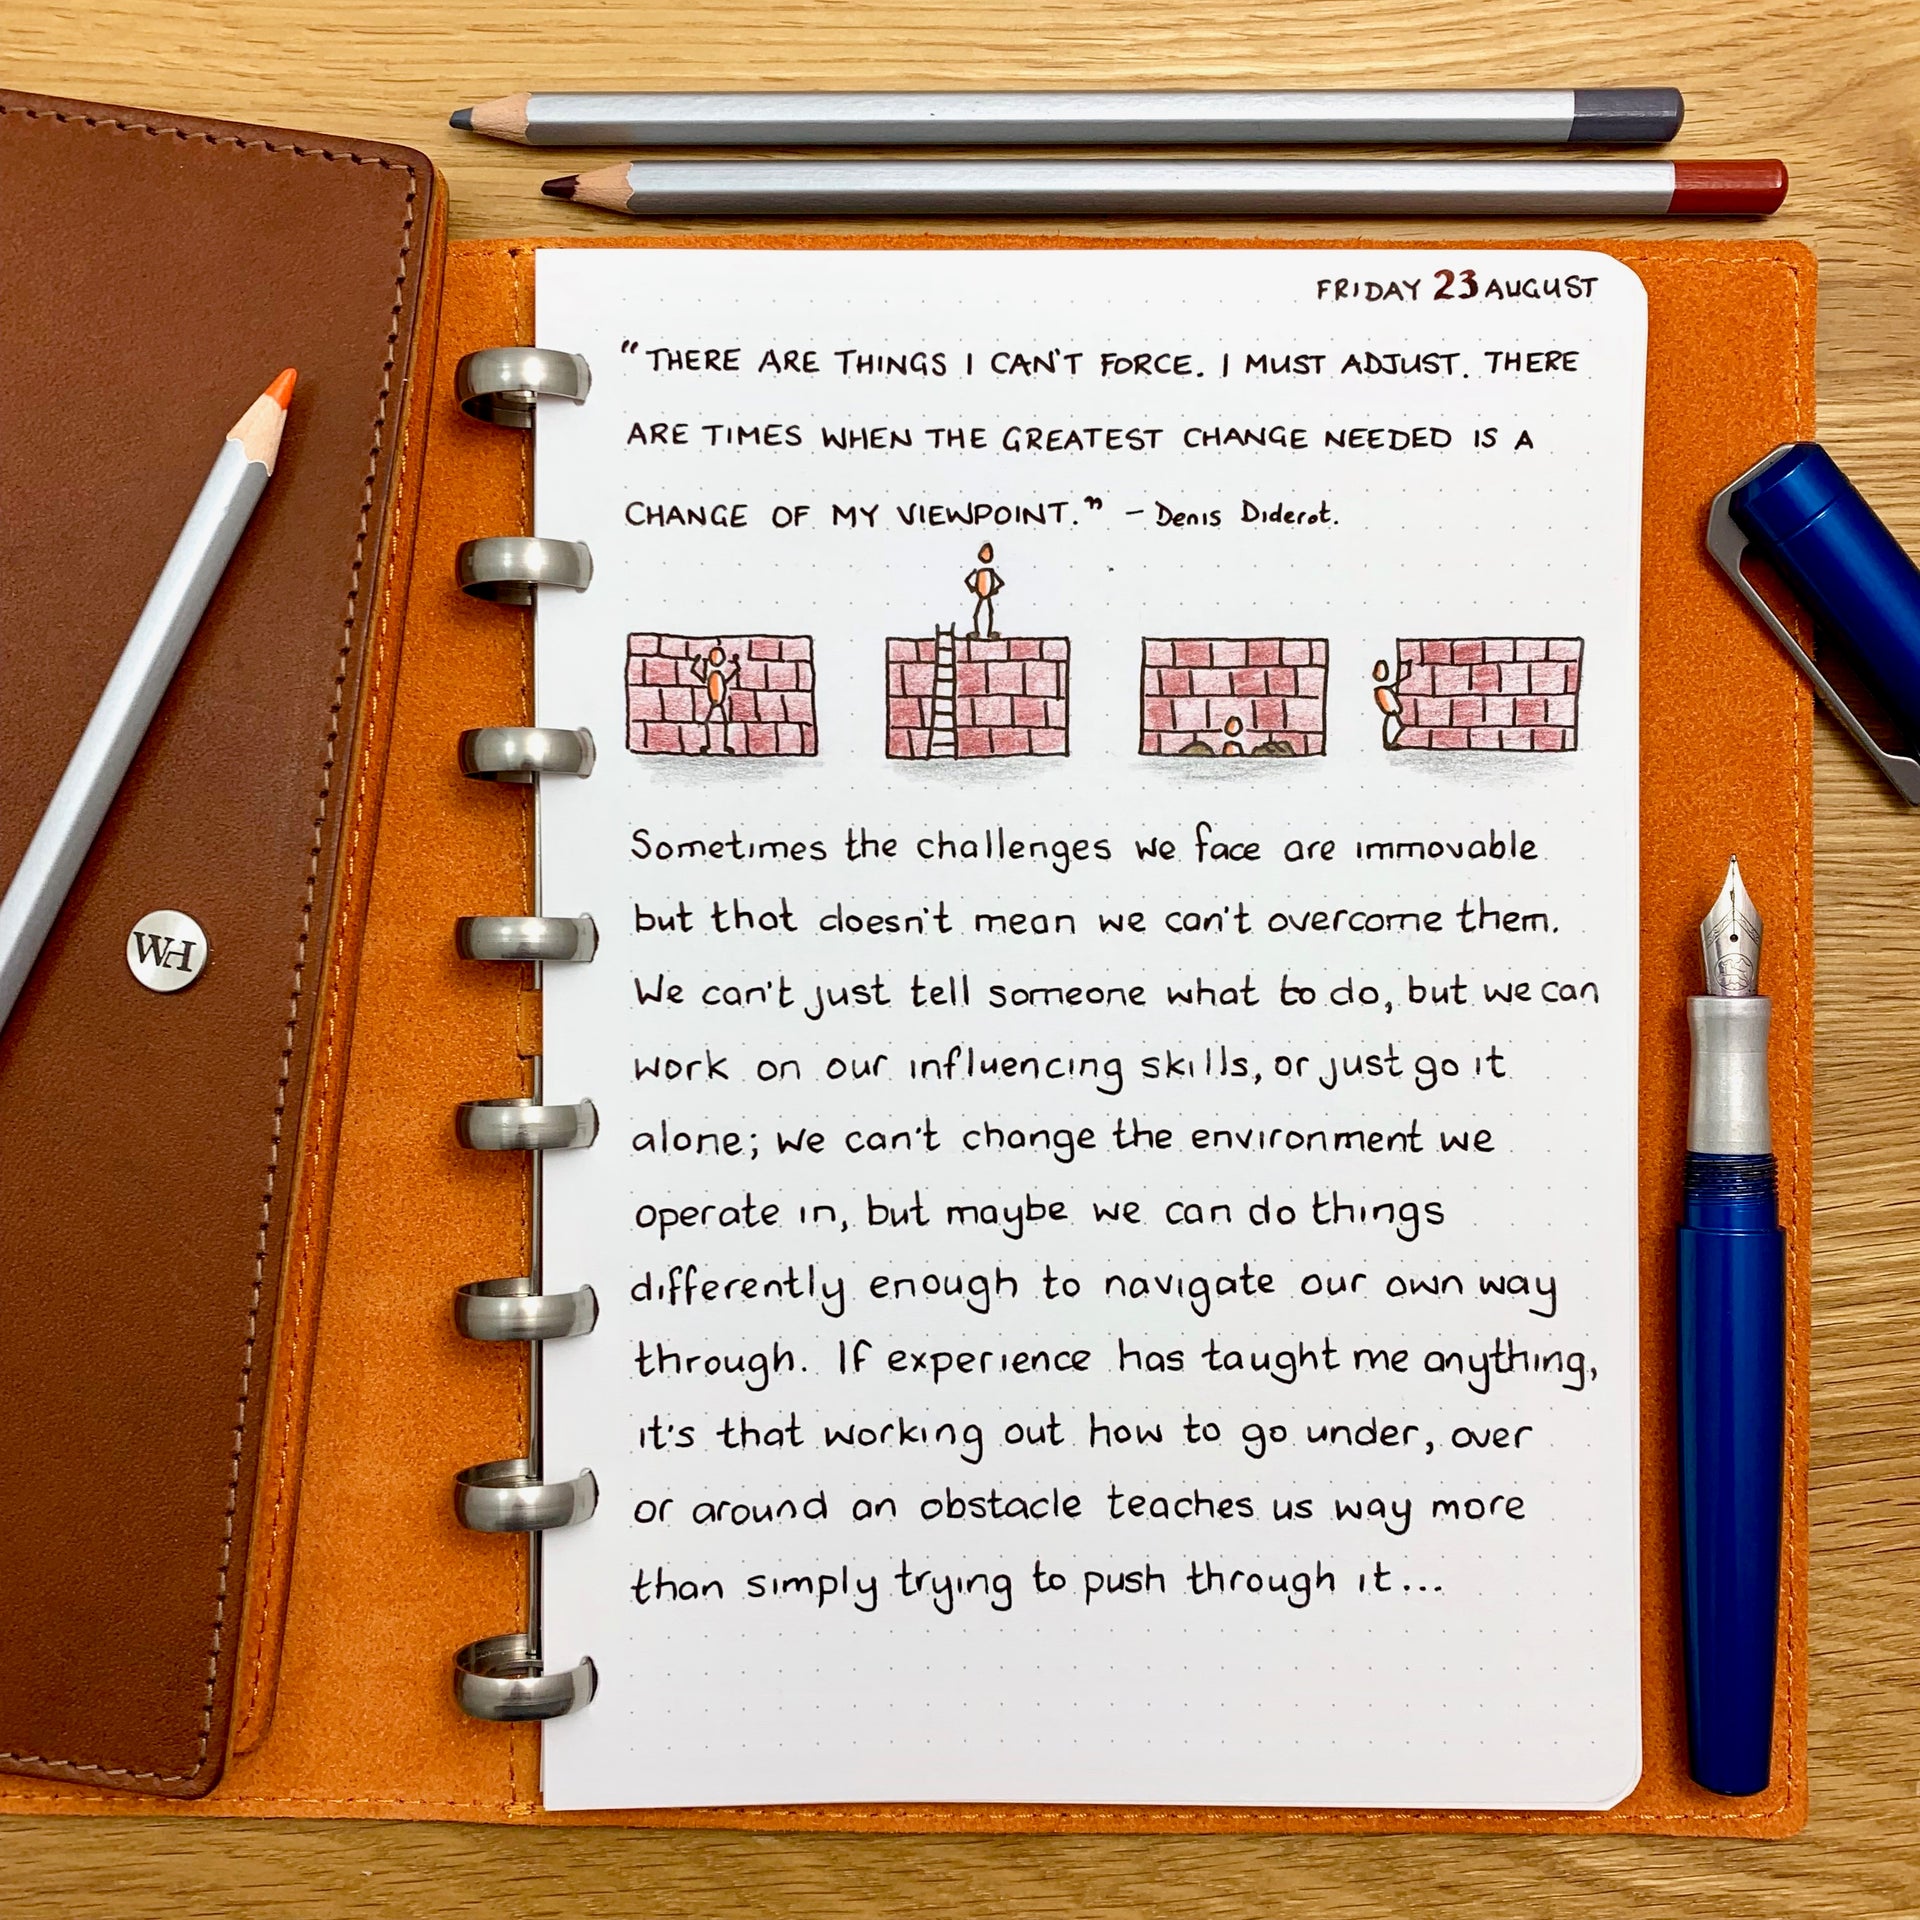 FRIDAY 23 AUGUST
"THERE ARE THINGS I CAN'T FORCE. I MUST ADJUST. THERE
ARE TIMES WHEN THE GREATEST CHANGE NEEDED IS A
CHANGE OF MY VIEWPOINT." - Denis Diderot.
Sometimes the challenges we face are immovable
but that doesn't mean we can't overcome them.
We can't just tell someone what to do, but we can
work on our influencing skills, or just go it
alone; we can't change the environment we
operate in, but maybe we can do things
differently enough to navigate our own way
through. If experience has taught me anything,
it's that working out how to go under, over
or around an obstacle teaches us way more
than simply trying to push through it...
WH